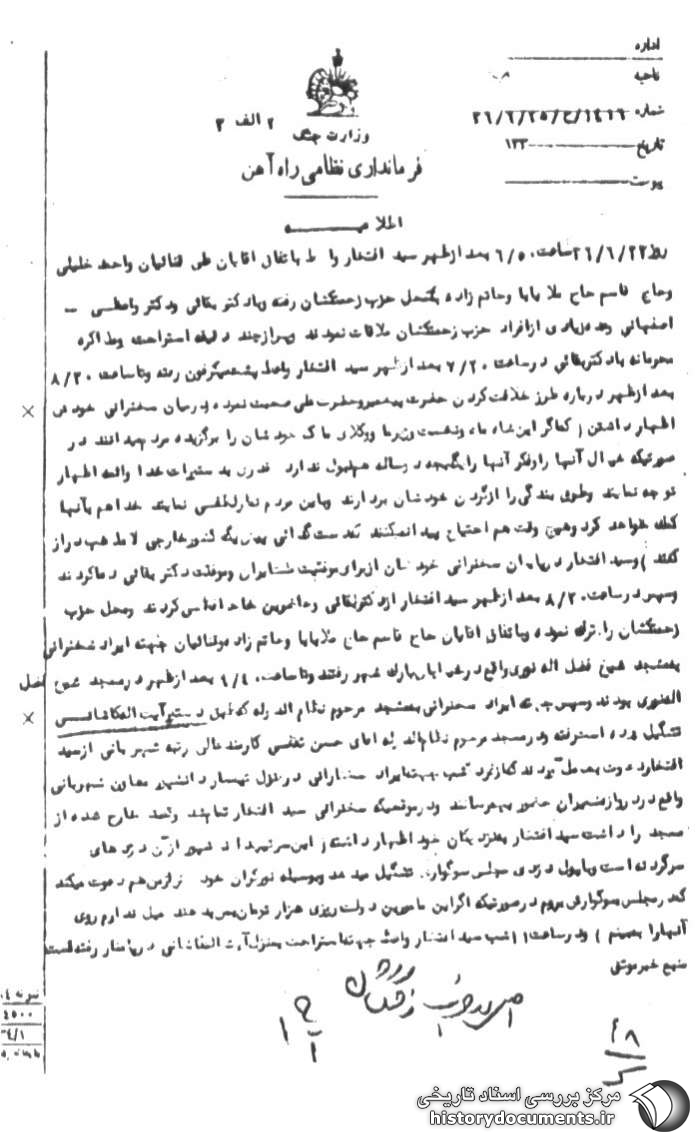 اداره
ناحیه
شماره ۲۶/۶/۲۵/ح/۱۴۱۶
تاریخ ۱۳۳
پیوست
۲ الف ۳
وزارت جنگ
فرمانداری نظامی راه آهن
اطلاعیه
روز ۲۶/۶/۲۳ ساعت ۶/۵۰ بعد از ظهر سید افتخار واعظ باتفاق اقایان علی فتائیان واحد خلیلی
وحاج قاسم حاج ملا بابا وحاتم زاده بمحل حزب زحمتکشان رفته وبا دکتر بقائی ودکتر واعظی -
اصفهانی وعده زیادی از افراد حزب زحمتکشان ملاقات نمودند وپس از چند دقیقه استراحت ومذاکره
محرمانه با دکتر بقائی در ساعت ۷/۲۰ بعد از ظهر سید افتخار واعظ پشت میکرفون رفته وتا ساعت ۸/۲۰
بعد از ظهر درباره طرز خلافت کردن حضرت پیغمبر وحضرت علی صحبت نموده ودر میان سخنرانی خودش
اظهار داشتن ( که اگر این شاه ما ونخست وزیر ما ووکلای ما که خودشان را برگزیده مردم میدانند در
صورتیکه اعمال آنها را وفکر آنها را یک بچه ده ساله هم قبول ندارد قدری به دستورات خدا وائمه اظهار
توجه نمایند وطوق بندگی را از گردن خودشان بردارند وباین مردم نمایند خدا هم بآنها
کمک خواهد کرد وهیچ وقت هم احتیاج پیدا نمیکنند که دست گدائی پیش یک کشور خارجی لامذهب دراز
کنند ) وسید افتخار در پایان سخنرانی خودشان از برای موفقیت ملت ایران وموفقیت دکتر بقائی دعا کردند
وسپس در ساعت ۸/۲۰ بعد از ظهر سید افتخار از دکتر بقائی وحاضرین خداحافظی کردند ومحل حزب
زحمتکشان را ترک نموده وباتفاق اقایان حاج قاسم حاج ملا بابا وحاتم زاده وفتائیان جهت ایراد سخنرانی
بمسجد شیخ فضل اله نوری واقع در خیابان شهر رفتند وتا ساعت ۹/۴۰ بعد از ظهر در مسجد شیخ فضل
اله نوری بودند وسپس جهت ایراد سخنرانی بمسجد مرحوم نظام الدوله که طبق دستور آیت اله کاشانی
تشکیل شده است رفته ودر مسجد مرحوم نظام الدوله اقای حسن نفیسی کارمند عالی رتبه شهربانی از سید
افتخار دعوت بعمل آوردند که از فردا شب جهت ایراد سخنرانی در منزل تیمسار دانشپور معاون شهربانی
واقع در دروازه شمیران حضور بهم رسانند ودر موقعیکه سخنرانی سید افتخار تمام شد وقصد خارج شدن از
مسجد را داشت سید افتخار بنزدیکان خود اظهار داشت ( این سرتیپ دانشپور از آن دزدهای
سرگردنه است وبا پول دزدی مجلس سوگواری تشکیل میدهد وبوسیله نوکران خود از من هم دعوت میکند
که در مجلس سوگواریش بروم در صورتیکه اگر این مامورین دولت روزی هزار تومان بمن بدهند میل ندارم روی
آنها را ببینم ) ودر ساعت ۱۱ شب سید افتخار واعظ جهت استراحت بمنزل آیت اله کاشانی در پامنار رفته است
منبع خبر موثق
۴۸
نمونه ۴۰
۴۵۰۰
۴/۱
مرکز بررسی اسناد تاریخی
historydocuments.ir